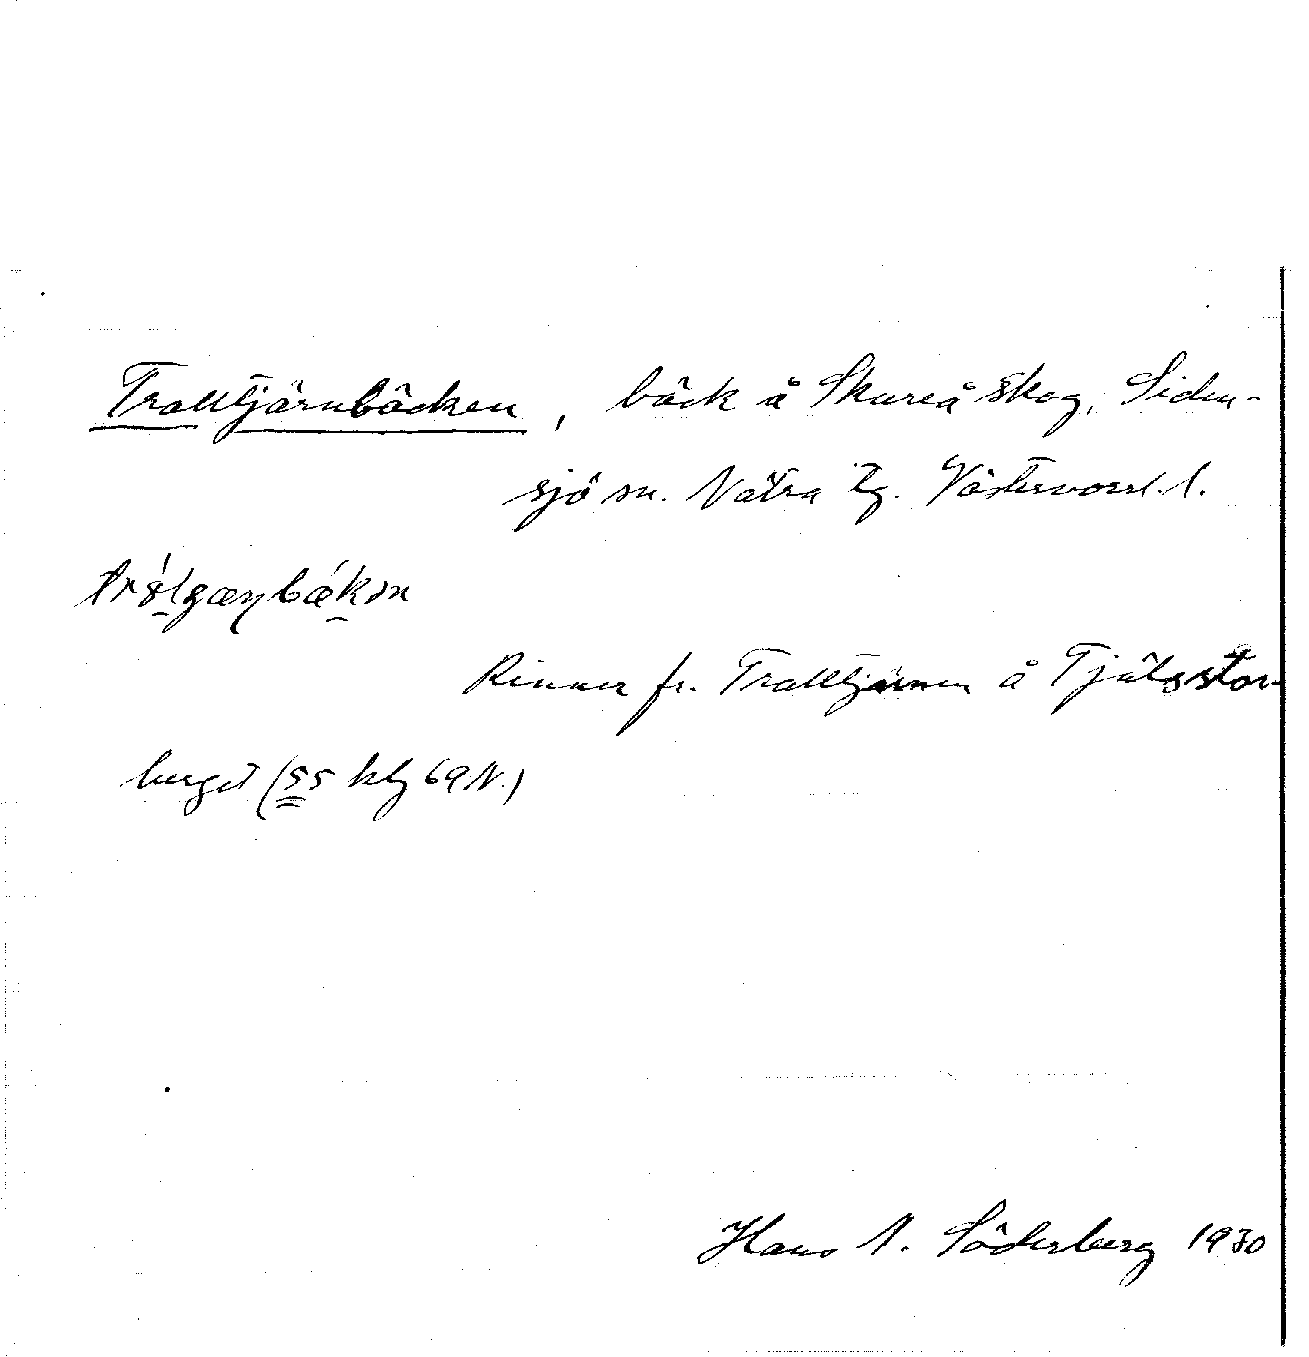 Trolltjärnbäcken, bäck å Skureå skog, Siden-
sjö sn. Nätra tg. Västernorrl. l.
Rinner fr. Trolltjärnen å Tjälsstor-
berget (55 klg 69 N.)
Hans A. Söderberg 1930